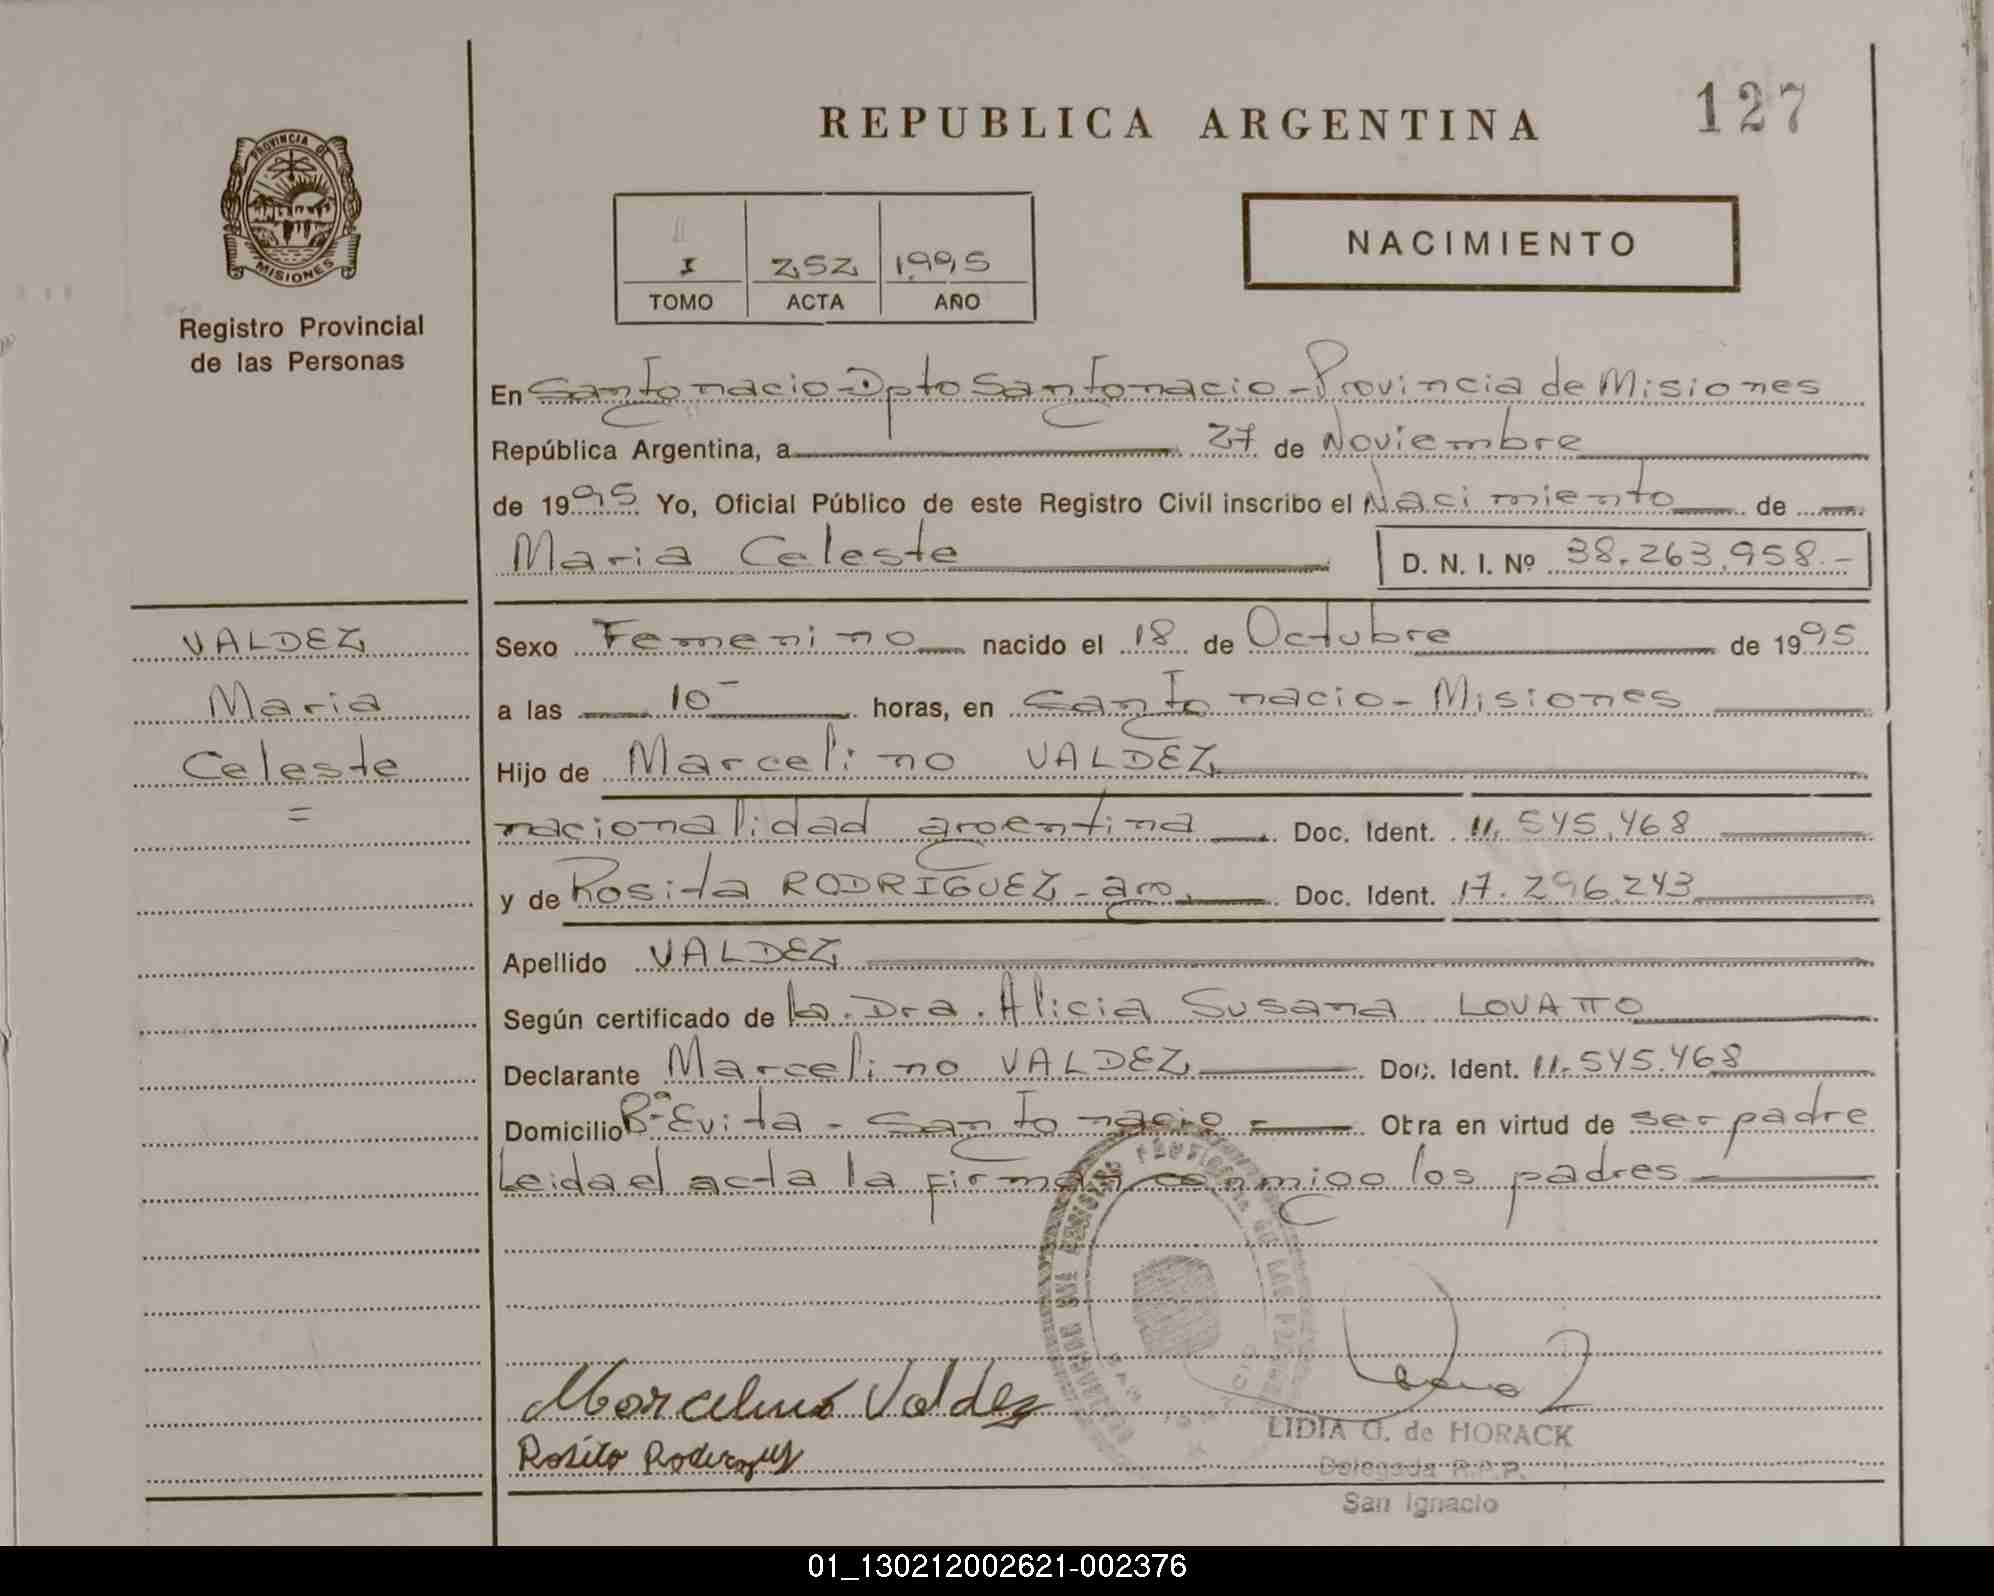 REPUBLICA ARGENTINA
127
PROVINCIA DE
MISIONES
Registro Provincial
de las Personas
I 252 1995
TOMO ACTA AÑO
NACIMIENTO
En San Ignacio - Dpto San Ignacio - Provincia de Misiones
República Argentina, a 27 de Noviembre
de 1995 Yo, Oficial Público de este Registro Civil inscribo el Nacimiento de
Maria Celeste D. N. I. Nº 38.263.958.-
VALDEZ
Maria
Celeste
=
Sexo Femenino nacido el 18 de Octubre de 1995
a las 10 horas, en San Ignacio - Misiones
Hijo de Marcelino VALDEZ
nacionalidad argentina Doc. Ident. 11.545.468
y de Rosita RODRIGUEZ - arg. Doc. Ident. 17.296.243
Apellido VALDEZ
Según certificado de la Dra. Alicia Susana LOVATTO
Declarante Marcelino VALDEZ Doc. Ident. 11.545.468
Domicilio Bº Evita - San Ignacio - Obra en virtud de ser padre
Leida el acta la firman conmigo los padres
Marcelino Valdez
Rosita Rodriguez
LIDIA G. de HORACK
Delegada R.P.P.
San Ignacio
01_130212002621-002376